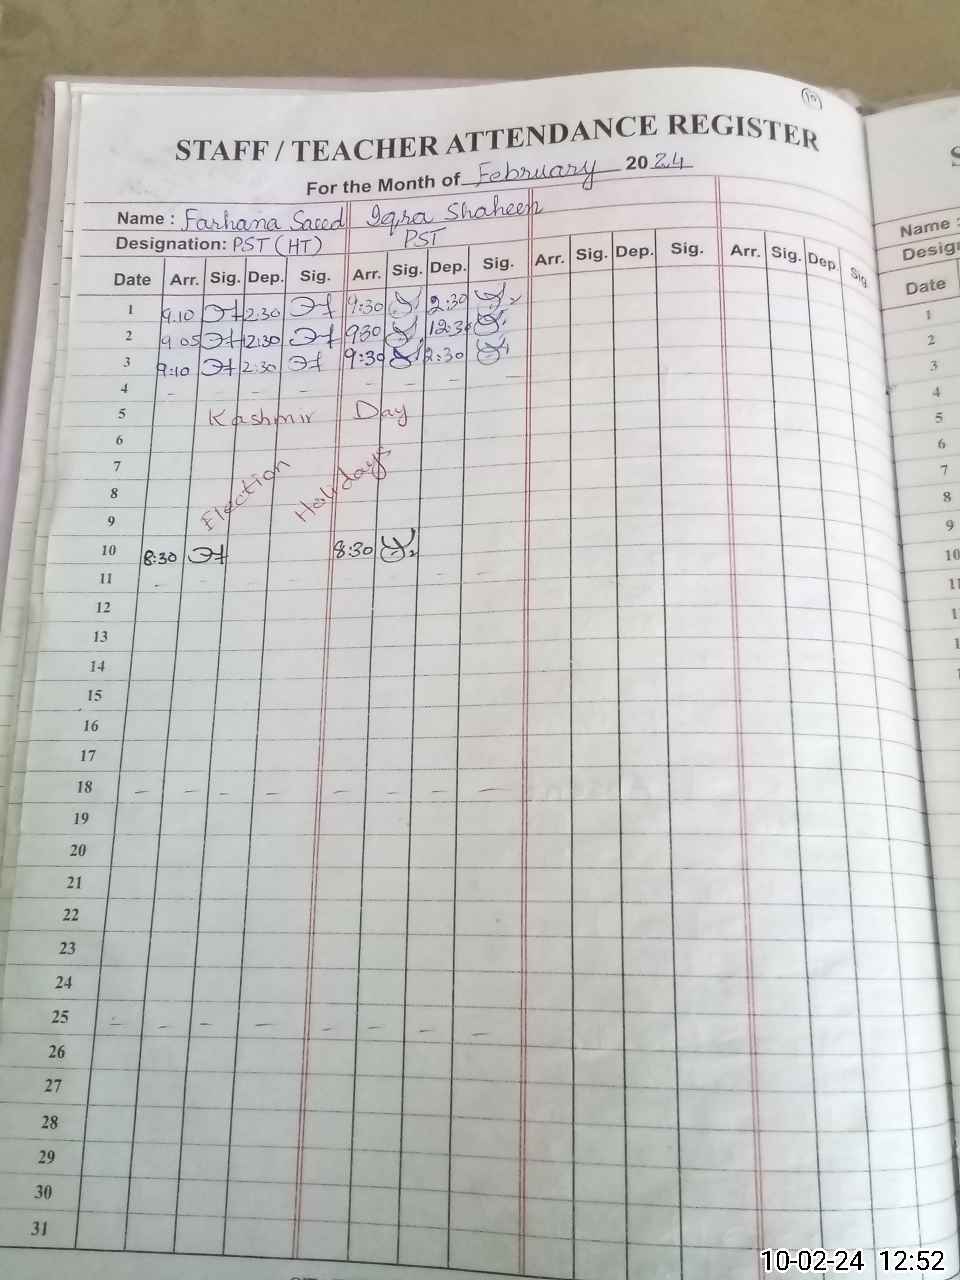 10
STAFF / TEACHER ATTENDANCE REGISTER
For the Month of February 2024
Name : Farhana Saeed Iqra Shaheen
Designation: PST (HT) PST
Date Arr. Sig. Dep. Sig. Arr. Sig. Dep. Sig. Arr. Sig. Dep. Sig. Arr. Sig. Dep. Sig.
1 9.10 2.30 9:30 2:30
2 9 05 12:30 930 12:30
3 9:10 2:30 9:30 2:30
4 - - - - - - - -
5 Kashmir Day
6
7
8 Election Holidays
9
10 8:30 8:30
11 - - - - - - - -
12
13
14
15
16
17
18 - - - - - - - -
19
20
21
22
23
24
25 - - - - - - - -
26
27
28
29
30
31
Name :
Date
1
2
3
4
5
6
7
8
9
10
11
10-02-24 12:52